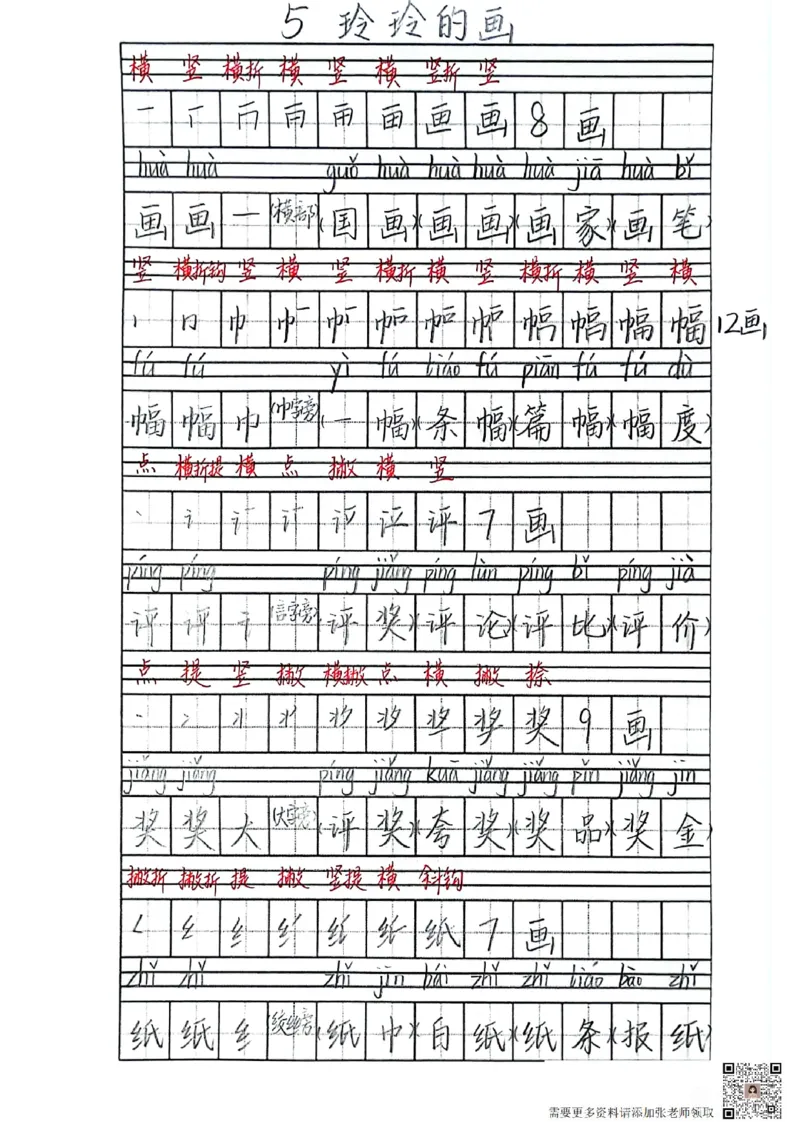 5 玲玲的画
横 竖 横折 横 竖 横 竖折 竖
一 丆 冂 面 面 画 画 画 8 画
huà huà guó huà huà huà huà jiā huà bǐ
画 画 一 (横部) (国 画) (画 画) (画 家) (画 笔)
竖 横折钩 竖 横 竖 横折 横 竖 横折 横 竖 横
幅 12画
fú fú yì fú tiáo fú piān fú fú dù
幅 幅 巾 (巾字旁) (一 幅) (条 幅) (篇 幅) (幅 度)
点 横折提 横 点 撇 横 竖
丶 讠 评 7 画
píng píng píng jiǎng píng lùn píng bǐ píng jià
评 评 讠 (言字旁) (评 奖) (评 论) (评 比) (评 价)
点 提 竖 撇 横撇 点 横 撇 捺
丶 冫 丬 奖 9 画
jiǎng jiǎng píng jiǎng kuā jiǎng jiǎng pǐn jiǎng jīn
奖 奖 大 (大字旁) (评 奖) (夸 奖) (奖 品) (奖 金)
撇折 撇折 提 撇 竖提 横 斜钩
纟 纸 7 画
zhǐ zhǐ zhǐ jīn bái zhǐ zhǐ tiáo bào zhǐ
纸 纸 纟 (绞丝旁) (纸 巾) (白 纸) (纸 条) (报 纸)
需要更多资料请添加张老师领取